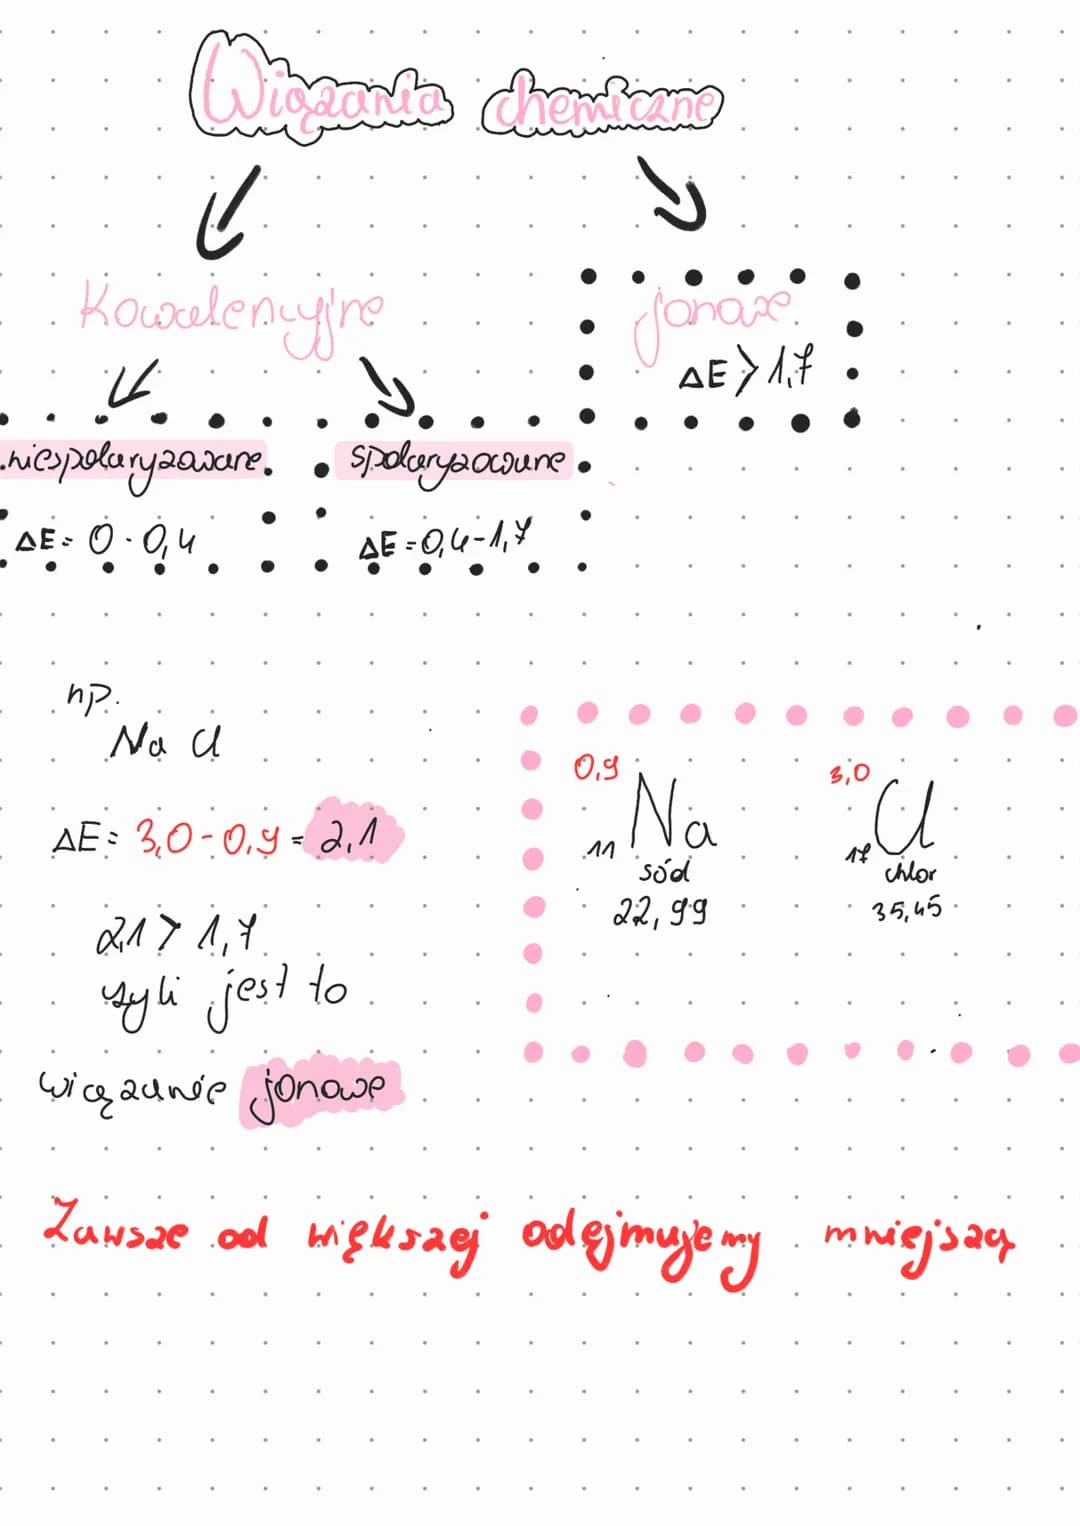 Wiązania chemiczne
Kowalencyjne
jonowe
ΔE > 1,7
niespolaryzowane
ΔE = 0 - 0,4
spolaryzowane
ΔE = 0,4-1,7
np.
NaCl
ΔE = 3,0 - 0,9 = 2,1
2,1 > 1,7
czyli jest to
wiązanie jonowe
0,9
11 Na
sód
22,99
3,0
17 Cl
chlor
35,45
Zawsze od większej odejmujemy mniejszą